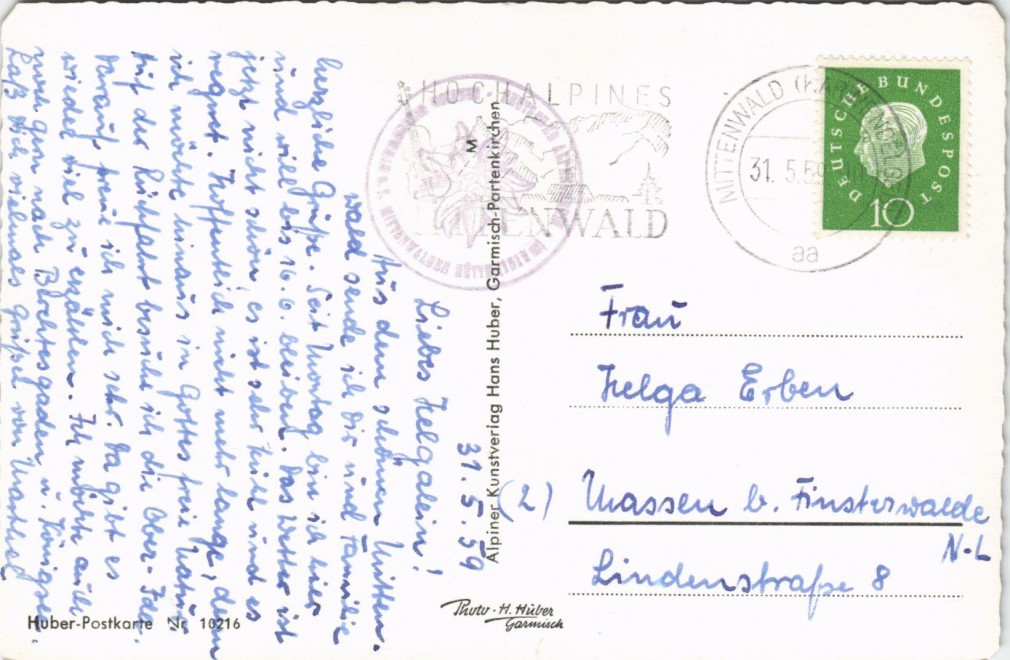 31.5.59
Liebes Helgalein!
Aus dem schönen Mitten-
wald sende ich Dir und Familie
herzliche Grüße. Seit Montag bin ich hier
und will bis 16.6. bleiben. Das Wetter ist
jetzt nicht schön, es ist sehr kühl und es
regnet. Hoffentlich nicht mehr lange, denn
ich möchte hinaus in Gottes freie Natur.
Auf der Rückfahrt besuche ich die Ober-
darauf freue ich mich sehr. Da gibt es
wieder viel zu erzählen. Ich möchte auch
noch gern nach Berchtesgaden u. Königsee.
Laß Dich vielmals grüßen von
Huber-Postkarte Nr. 10216
Alpiner Kunstverlag Hans Huber, Garmisch-Partenkirchen
M
Photo-H. Huber
Garmisch
HOCHALPINES
MITTENWALD
MITTENWALD
31.5.59
aa
DEUTSCHE BUNDESPOST
10
Frau
Helga Erben
(2) Massen b. Finsterwalde
N-L
Lindenstraße 8